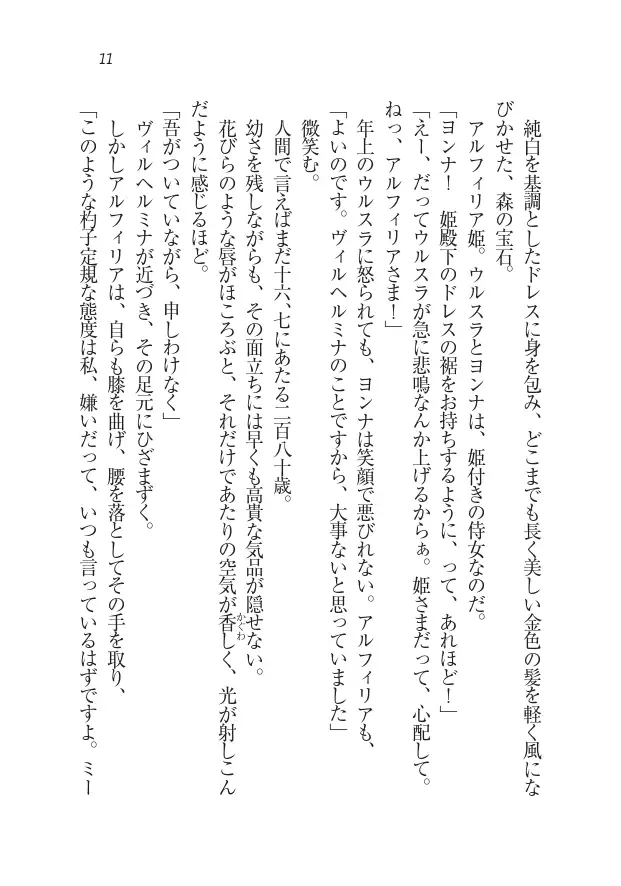 11
純白を基調としたドレスに身を包み、どこまでも長く美しい金色の髪を軽く風にな
びかせた、森の宝石。
アルフィリア姫。ウルスラとヨンナは、姫付きの侍女なのだ。
「ヨンナ！　姫殿下のドレスの裾をお持ちするように、って、あれほど！」
「えー、だってウルスラが急に悲鳴なんか上げるからぁ。姫さまだって、心配して。
ねっ、アルフィリアさま！」
年上のウルスラに怒られても、ヨンナは笑顔で悪びれない。アルフィリアも、
微笑む。
「よいのです。ヴィルヘルミナのことですから、大事ないと思っていました」
人間で言えばまだ十六、七にあたる二百八十歳。
幼さを残しながらも、その面立ちには早くも高貴な気品が隠せない。
花びらのような唇がほころぶと、それだけであたりの空気が香しく、光が射しこん
かぐわ
だように感じるほど。
「吾がついていながら、申しわけなく」
ヴィルヘルミナが近づき、その足元にひざまずく。
しかしアルフィリアは、自らも膝を曲げ、腰を落としてその手を取り、
「このような杓子定規な態度は私、嫌いだって、いつも言っているはずですよ。ミー